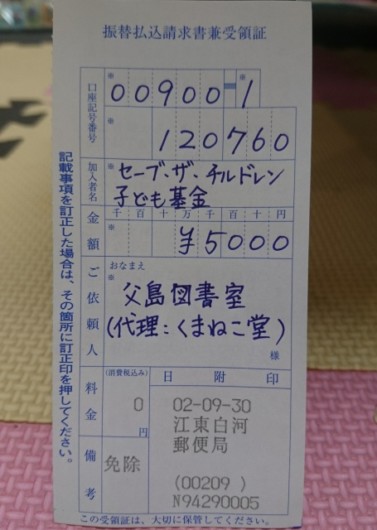 振替払込請求書兼受領証
口座記号番号
00900-1
120760
加入者名
セーブ・ザ・チルドレン
子ども基金
金額
千百十万千百十円
¥5000
ご依頼人
おなまえ
父島図書室
(代理:くまねこ堂)
様
料金
(消費税込み)
0
円
備考
免除
日附印
02-09-30
江東白河
郵便局
(00209 )
N94290005
記載事項を訂正した場合は、その箇所に訂正印を押してください。
この受領証は、大切に保管してください。